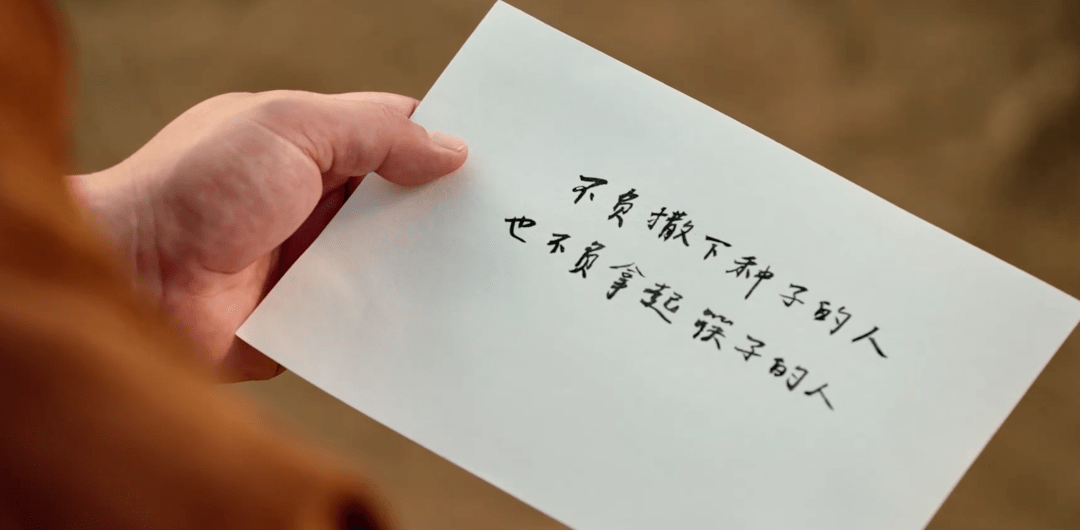 不负撒下种子的人
也不负拿起筷子的人